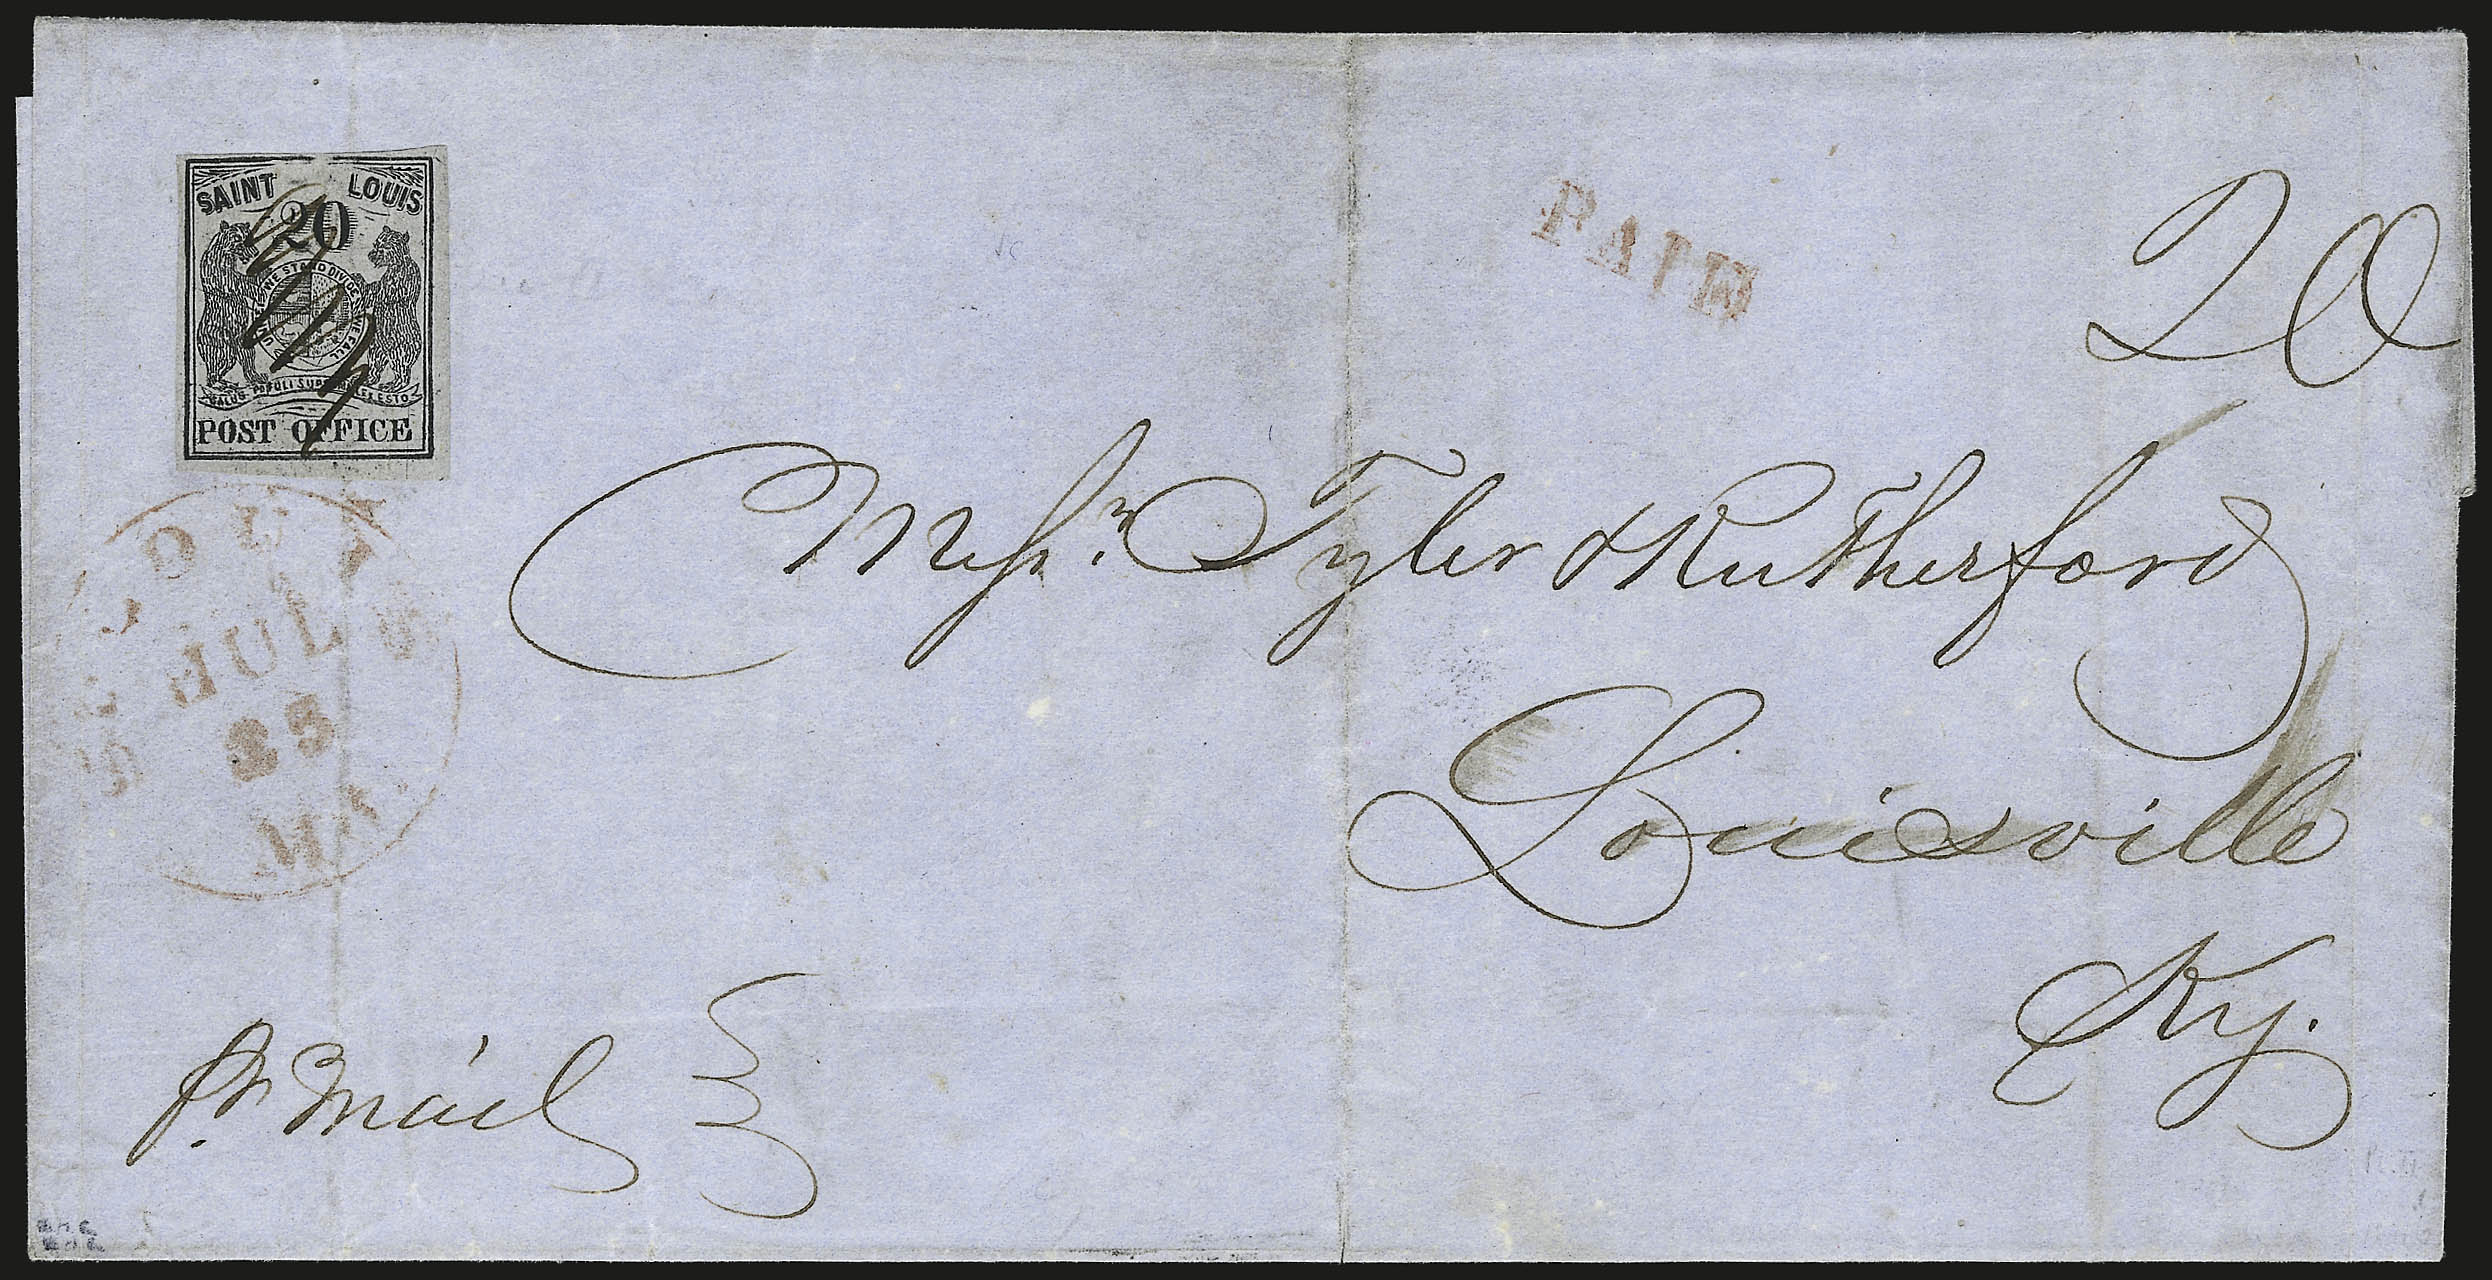 SAINT LOUIS
20
UNITED WE STAND DIVIDED WE FALL
SALUS POPULI SUPREMA LEX ESTO
POST OFFICE
PAID
20
Messrs. Tyler & Rutherford
Louisville
Ky.
JUL
23
MO.
pr. Mail